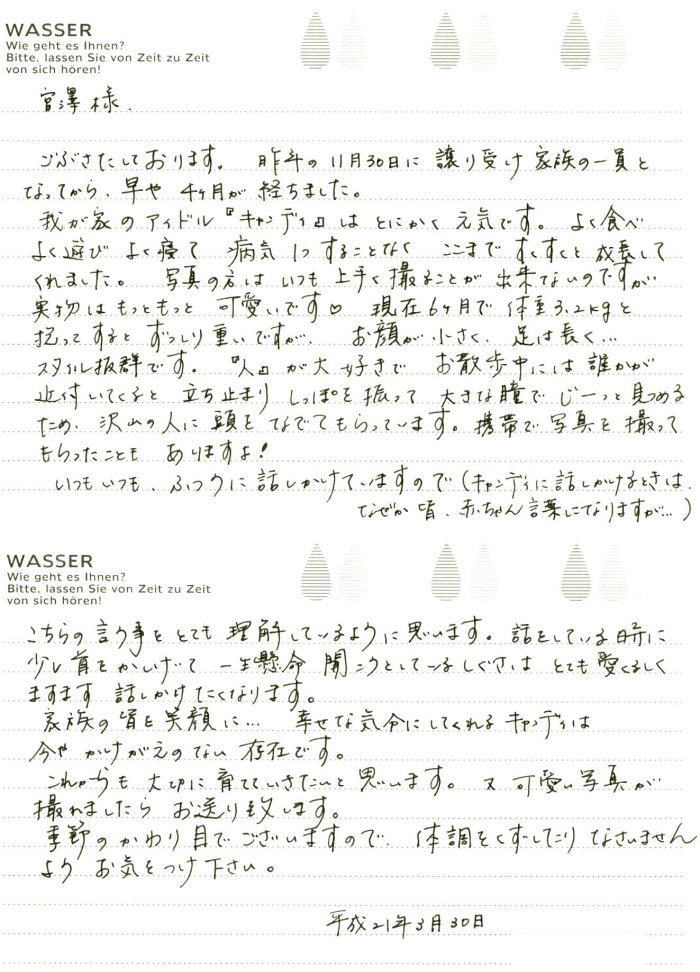 WASSER
Wie geht es Ihnen?
Bitte, lassen Sie von Zeit zu Zeit
von sich hören!
宮澤様.
ごぶさたしております。 昨年の11月30日に譲り受け家族の一員と
なってから、早や4ヶ月が経ちました。
我が家のアイドル『キャンディ』はとにかく元気です。よく食べ
よく遊びよく寝て 病気1つすることなく ここまですくすくと成長して
くれました。 写真の方はいつも上手く撮ることが出来ないのですが
実物はもっともっと可愛いです♡ 現在6ヶ月で体重3.2kgと
抱っこするとずっしり重いですが、 お顔が小さく、足は長く…
スタイル抜群です。 『人』が大好きで お散歩中には誰かが
近付いてくると立ち止まりしっぽを振って大きな瞳でじーっと見つめる
ため、沢山の人に頭をなでてもらっています。携帯で写真を撮って
もらったこともありますよ!
いつもいつも、ふつうに話しかけていますので(キャンディに話しかけるときは、
なぜか皆、赤ちゃん言葉になりますが…)
WASSER
Wie geht es Ihnen?
Bitte, lassen Sie von Zeit zu Zeit
von sich hören!
こちらの言う事をとても理解しているように思います。話をしている時に
少し首をかしげて一生懸命聞こうとしているしぐさはとても愛くるしく
ますます話しかけたくなります。
家族の皆を笑顔に… 幸せな気分にしてくれるキャンディは
今やかけがえのない存在です。
これからも大切に育てていきたいと思います。 又可愛い写真が
撮れましたらお送り致します。
季節のかわり目でございますので、体調をくずしたりなさいません
ようお気をつけ下さい。
平成21年3月30日